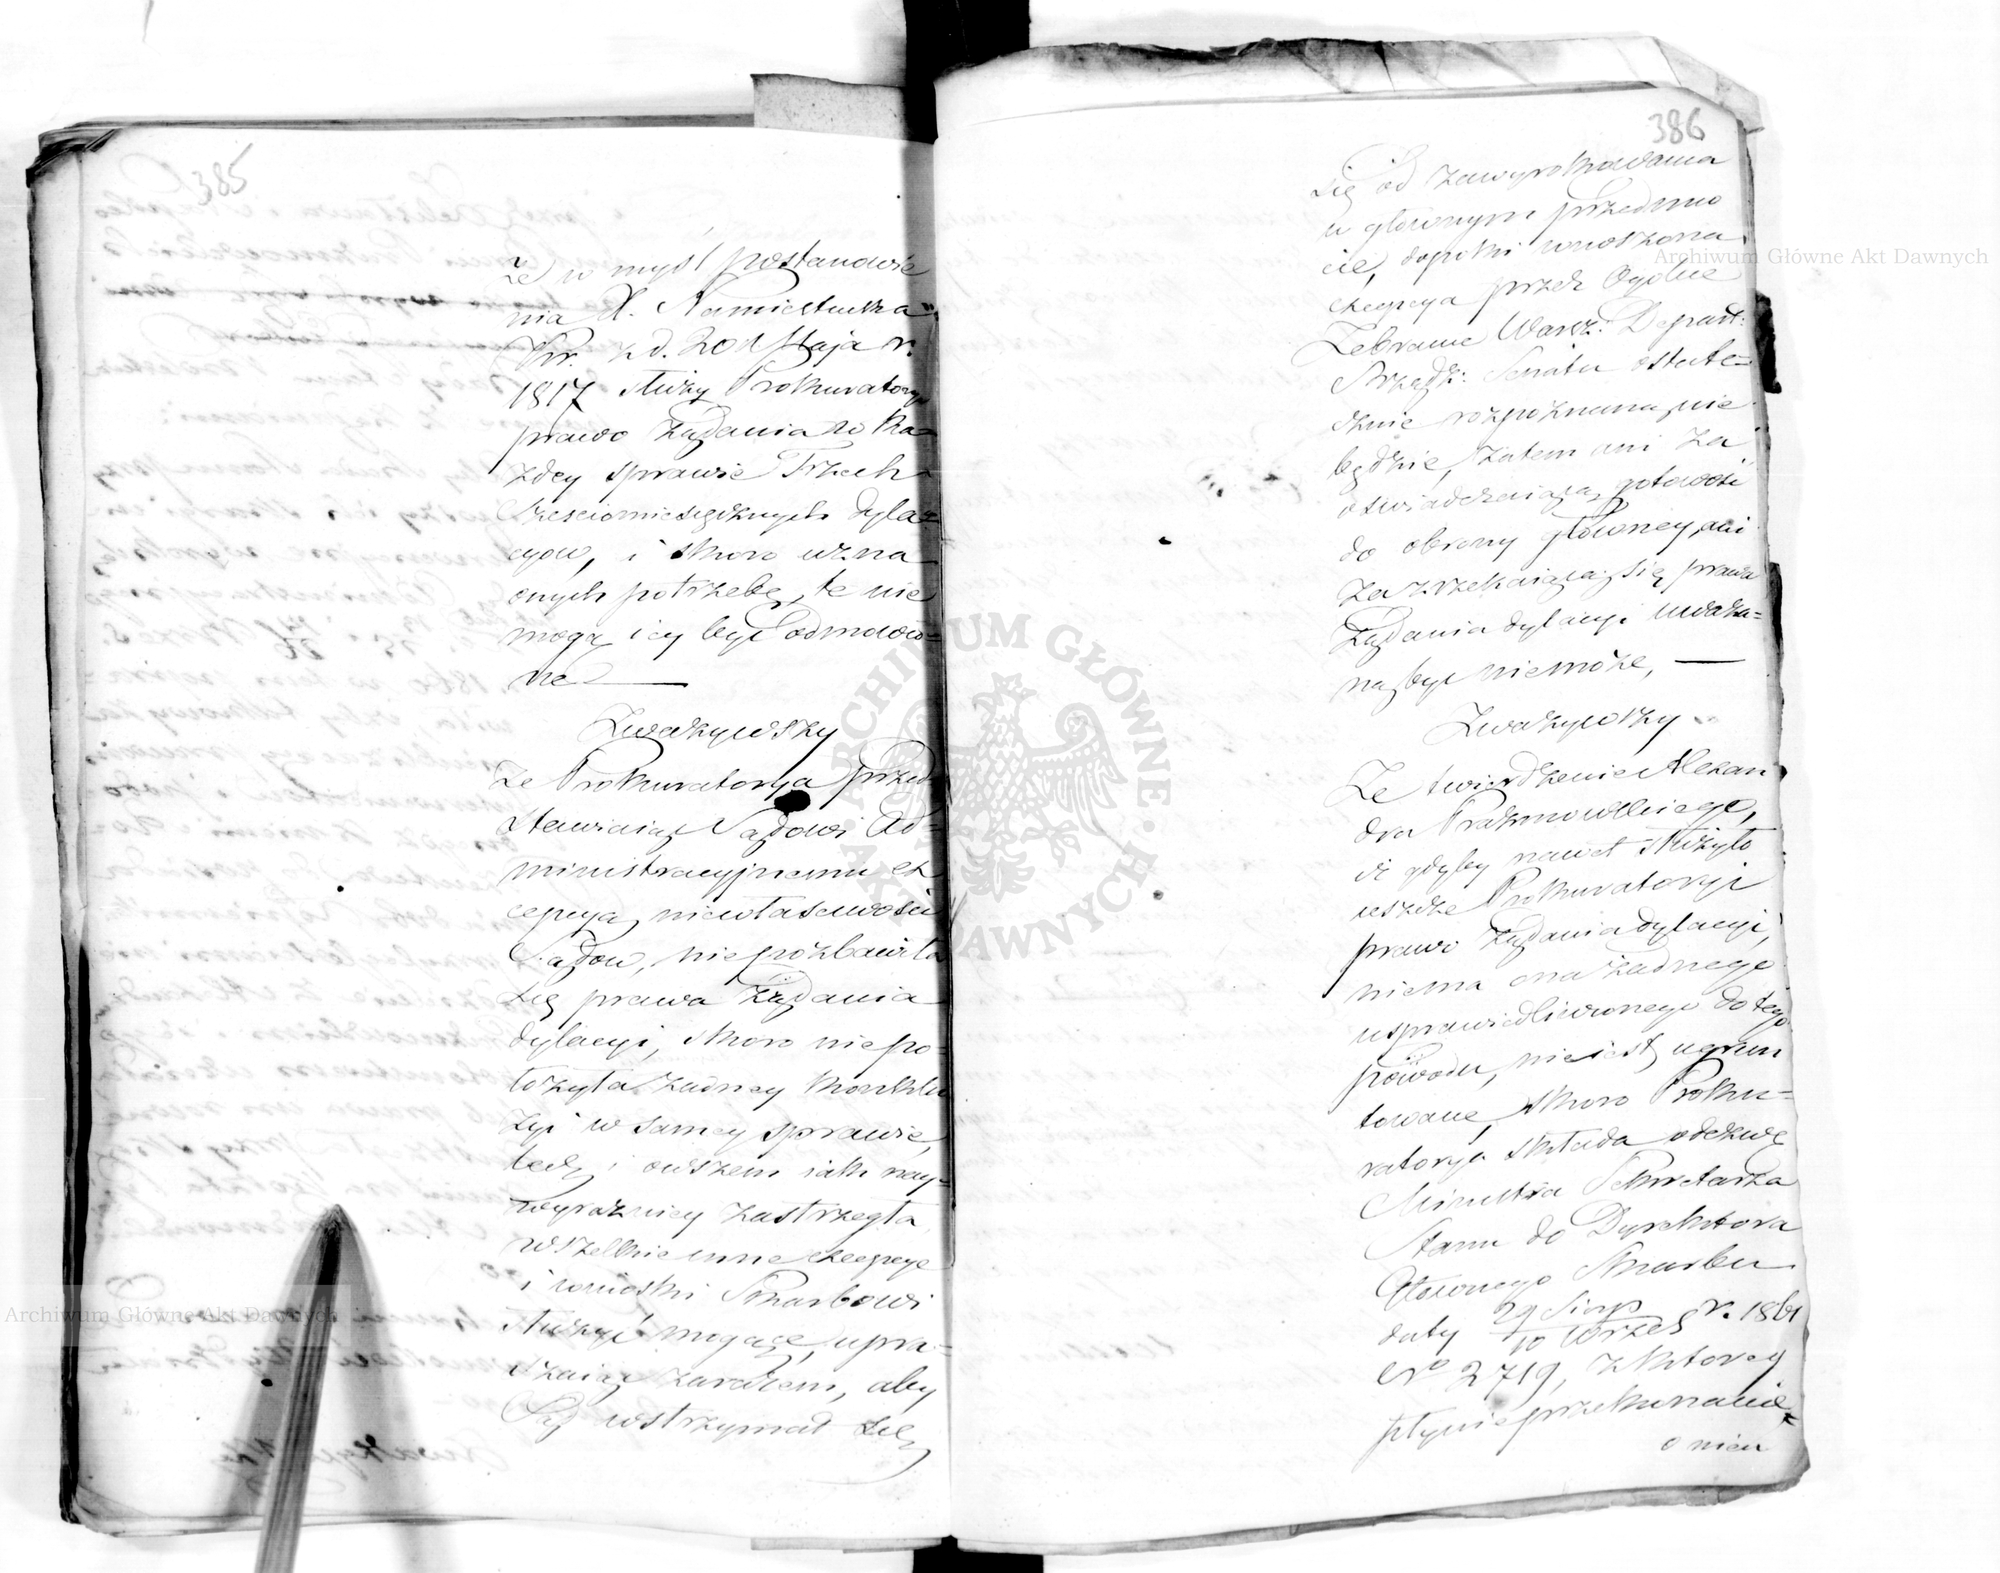 385
że w myśl postanowie
nia X. Namiestnika
Kr. z d. 20 Maja r.
1817 służy Prokuratoryi
prawo żądania w ka=
żdey sprawie trzech
sześciomiesięcznych dyla=
cyow, i skoro uzna
onych potrzebę, te nie
mogą iey być odmówio=
ne
Zważywszy
że Prokuratorya przed=
stawiaiąc Sądowi Ad=
ministracyjnemu ex
cepcyą niewłaściwości
Sądow, niepozbawiła
się prawa żądania
dylacyi, skoro niepo=
łożyła żadney konklu
zyi w samey sprawie,
lecz i owszem iak nay=
wyraźniey zastrzegła
wszelkie inne excepcye
i wnioski Skarbowi
służyć mogące, upra=
szaiąc zarazem, aby
Sąd wstrzymał się
386
się od zawyrokowania
w głównym przedmio
cie, dopóki wnoszona
excepcya przez Ogólne
Zebranie Warsz: Depart:
Rządz: Senatu ostate=
cznie rozpoznaną nie
będzie, zatem ani za
oświadczaiącą gotowość
do obrony główney, ani
za zrzekaiącą się prawa
żądania dylacyi uważa=
ną być niemoże,
Zważywszy
Że twierdzenie Alexan
dra Prażmowskiego,
iż gdyby nawet służyło
ieszcze Prokuratoryi
prawo żądania dylacyi,
niema ona żadnego
usprawiedliwionego do tego
powodu, nieiest ugrun
towane, skoro Proku=
ratorya składa odezwę
Ministra Sekretarza
Stanu do Dyrektora
Głównego Skarbu
daty 29 Sierp / 10 Wrześ r. 1861
No 2719, z ktorey
płynie przekonanie
o nieu
Archiwum Główne Akt Dawnych
Archiwum Główne Akt Dawnych
ARCHIWUM GŁÓWNE · AKT DAWNYCH ·